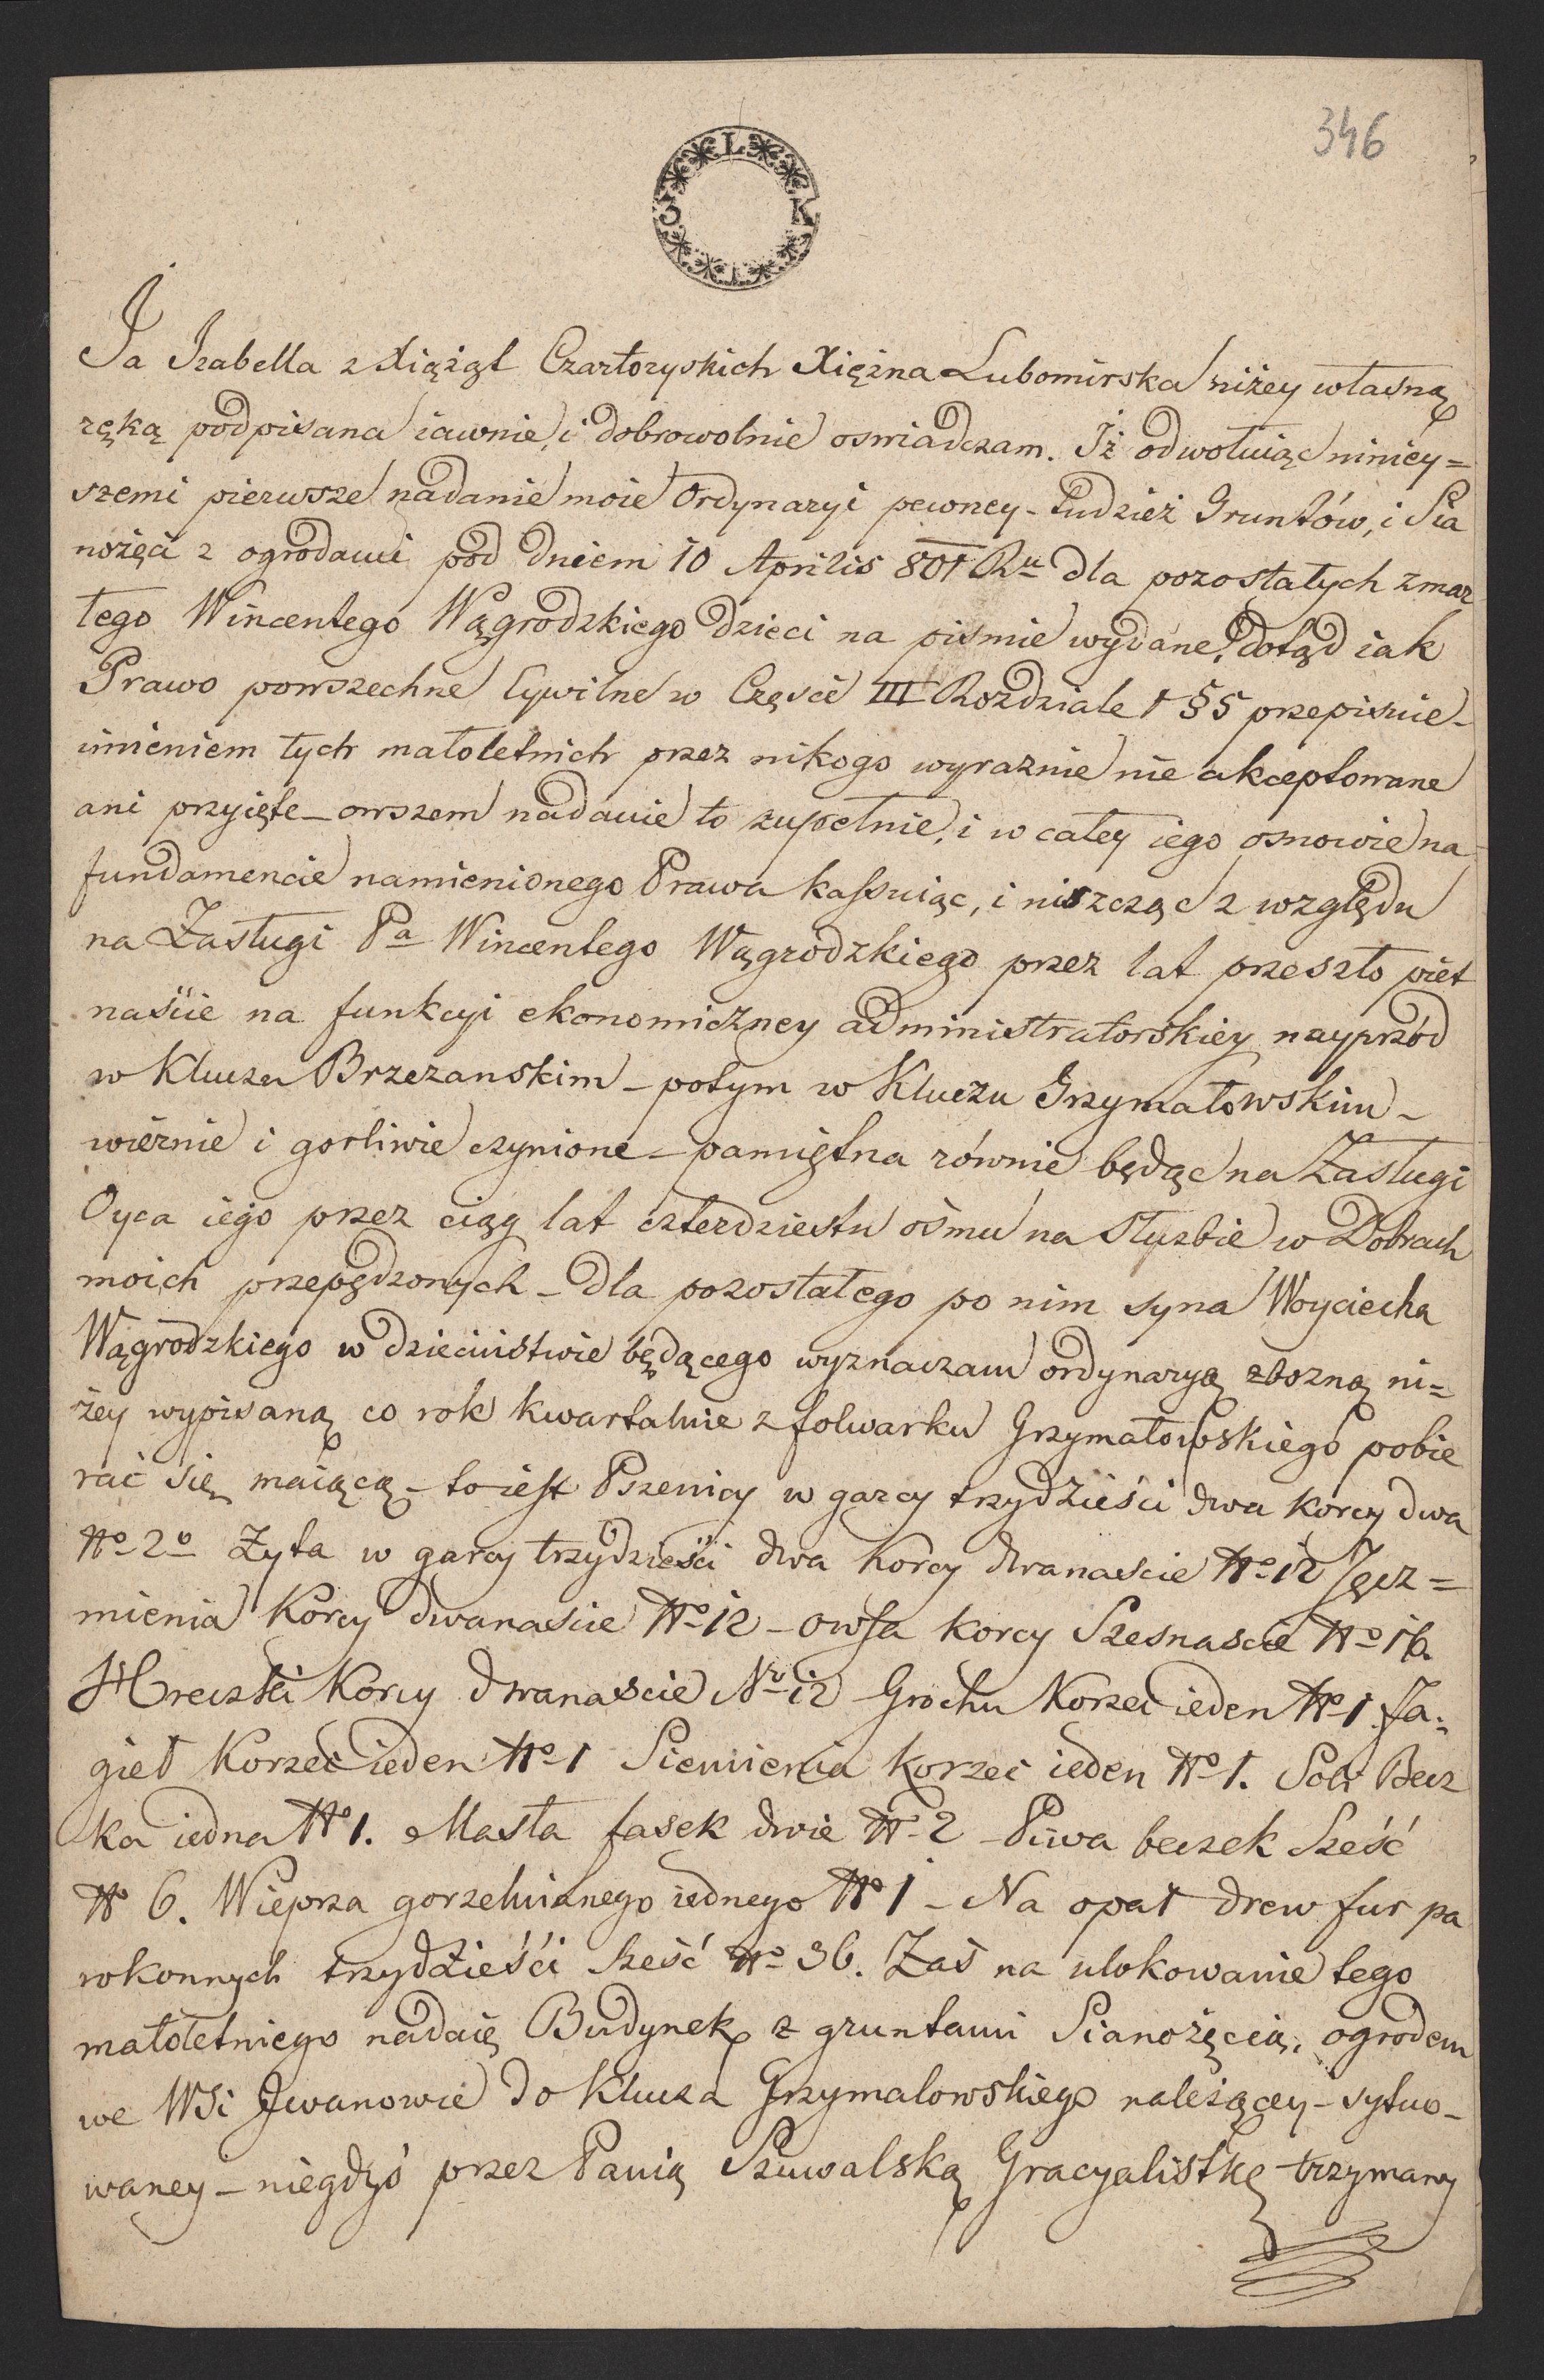 346
L
3 K
Ja Izabella z Xiążąt Czartoryskich Xiężna Lubomirska niżey własną
ręką podpisana iawnie, i dobrowolnie oswiadczam. Iż odwołuiąc niniey=
szemi pierwsze nadanie moie Ordynaryi pewney - tudzież Gruntów, i Sia
nożęci z ogrodami pod dniem 10 Aprilis 801 Ru dla pozostałych zmar
łego Wincentego Wągrodzkiego dzieci na pismie wydane, dotąd iak
Prawo powszechne Cywilne w Częsci III Rozdziale 1 §5 przepisuie -
imieniem tych małoletnich przez nikogo wyraznie nie akceptowane
ani przyięte - owszem nadanie to zupełnie, i w całey iego osnowie na
fundamencie namienionego Prawa kassuiąc, i niszcząc z względu
na Zasługi Pa Wincentego Wągrodzkiego przez lat przeszło piet
naście na funkcyi ekonomiczney administratorskiey nayprzód
w Kluczu Brzezanskim - potym w Kluczu Grzymałowskim -
wiernie i gorliwie czynione - pamiętna równie będąc na Zasługi
Oyca iego przez ciąg lat czterdziestu ośmu na służbie w Dobrach
moich przepędzonych - dla pozostałego po nim syna Woyciecha
Wągrodzkiego w dzieciństwie będącego wyznaczam ordynaryą zbozną ni=
żey wypisaną co rok kwartalnie z folwarku Grzymałowskiego pobie
rać się maiącą - to iest Pszenicy w garcy trzydzieści dwa korcy dwa
No 2o Zyta w garcy trzydzieści dwa Korcy dwanascie No 12 Jęcz=
mienia Korcy dwanascie No 12 - owsa korcy Szesnascie No 16.
Hreczki Korcy dwanascie Nro 12 Grochu Korzec ieden No 1. Ja=
gieł Korzec ieden No 1 Siemienia korzec ieden No 1. Soli Becz
ka iedna No 1. Masła fasek dwie No 2 - Piwa beczek Sześć
No 6. Wieprza gorzelnianego iednego No 1 - Na opał drew fur pa
rokonnych trzydzieści sześć No 36. Zaś na ulokowanie tego
małoletniego nadaię Budynek z gruntami Sianożęcią, ogrodem
we WSi Jwanowie do Klucza Grzymalowskiego należącey - sytuo-
waney - niegdyś przez Panią Szuwalską Gracyalistkę trzymany